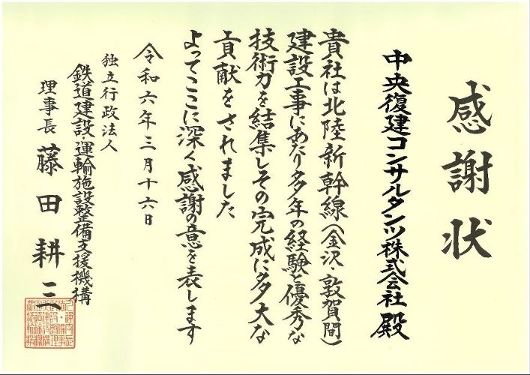 感謝状
中央復建コンサルタンツ株式会社 殿
貴社は北陸新幹線(金沢・敦賀間)
建設工事にあたり多年の経験と優秀な
技術力を結集しその完成に多大な
貢献をされました
よってここに深く感謝の意を表します
令和六年三月十六日
独立行政法人
鉄道建設・運輸施設整備支援機構
理事長 藤田耕三